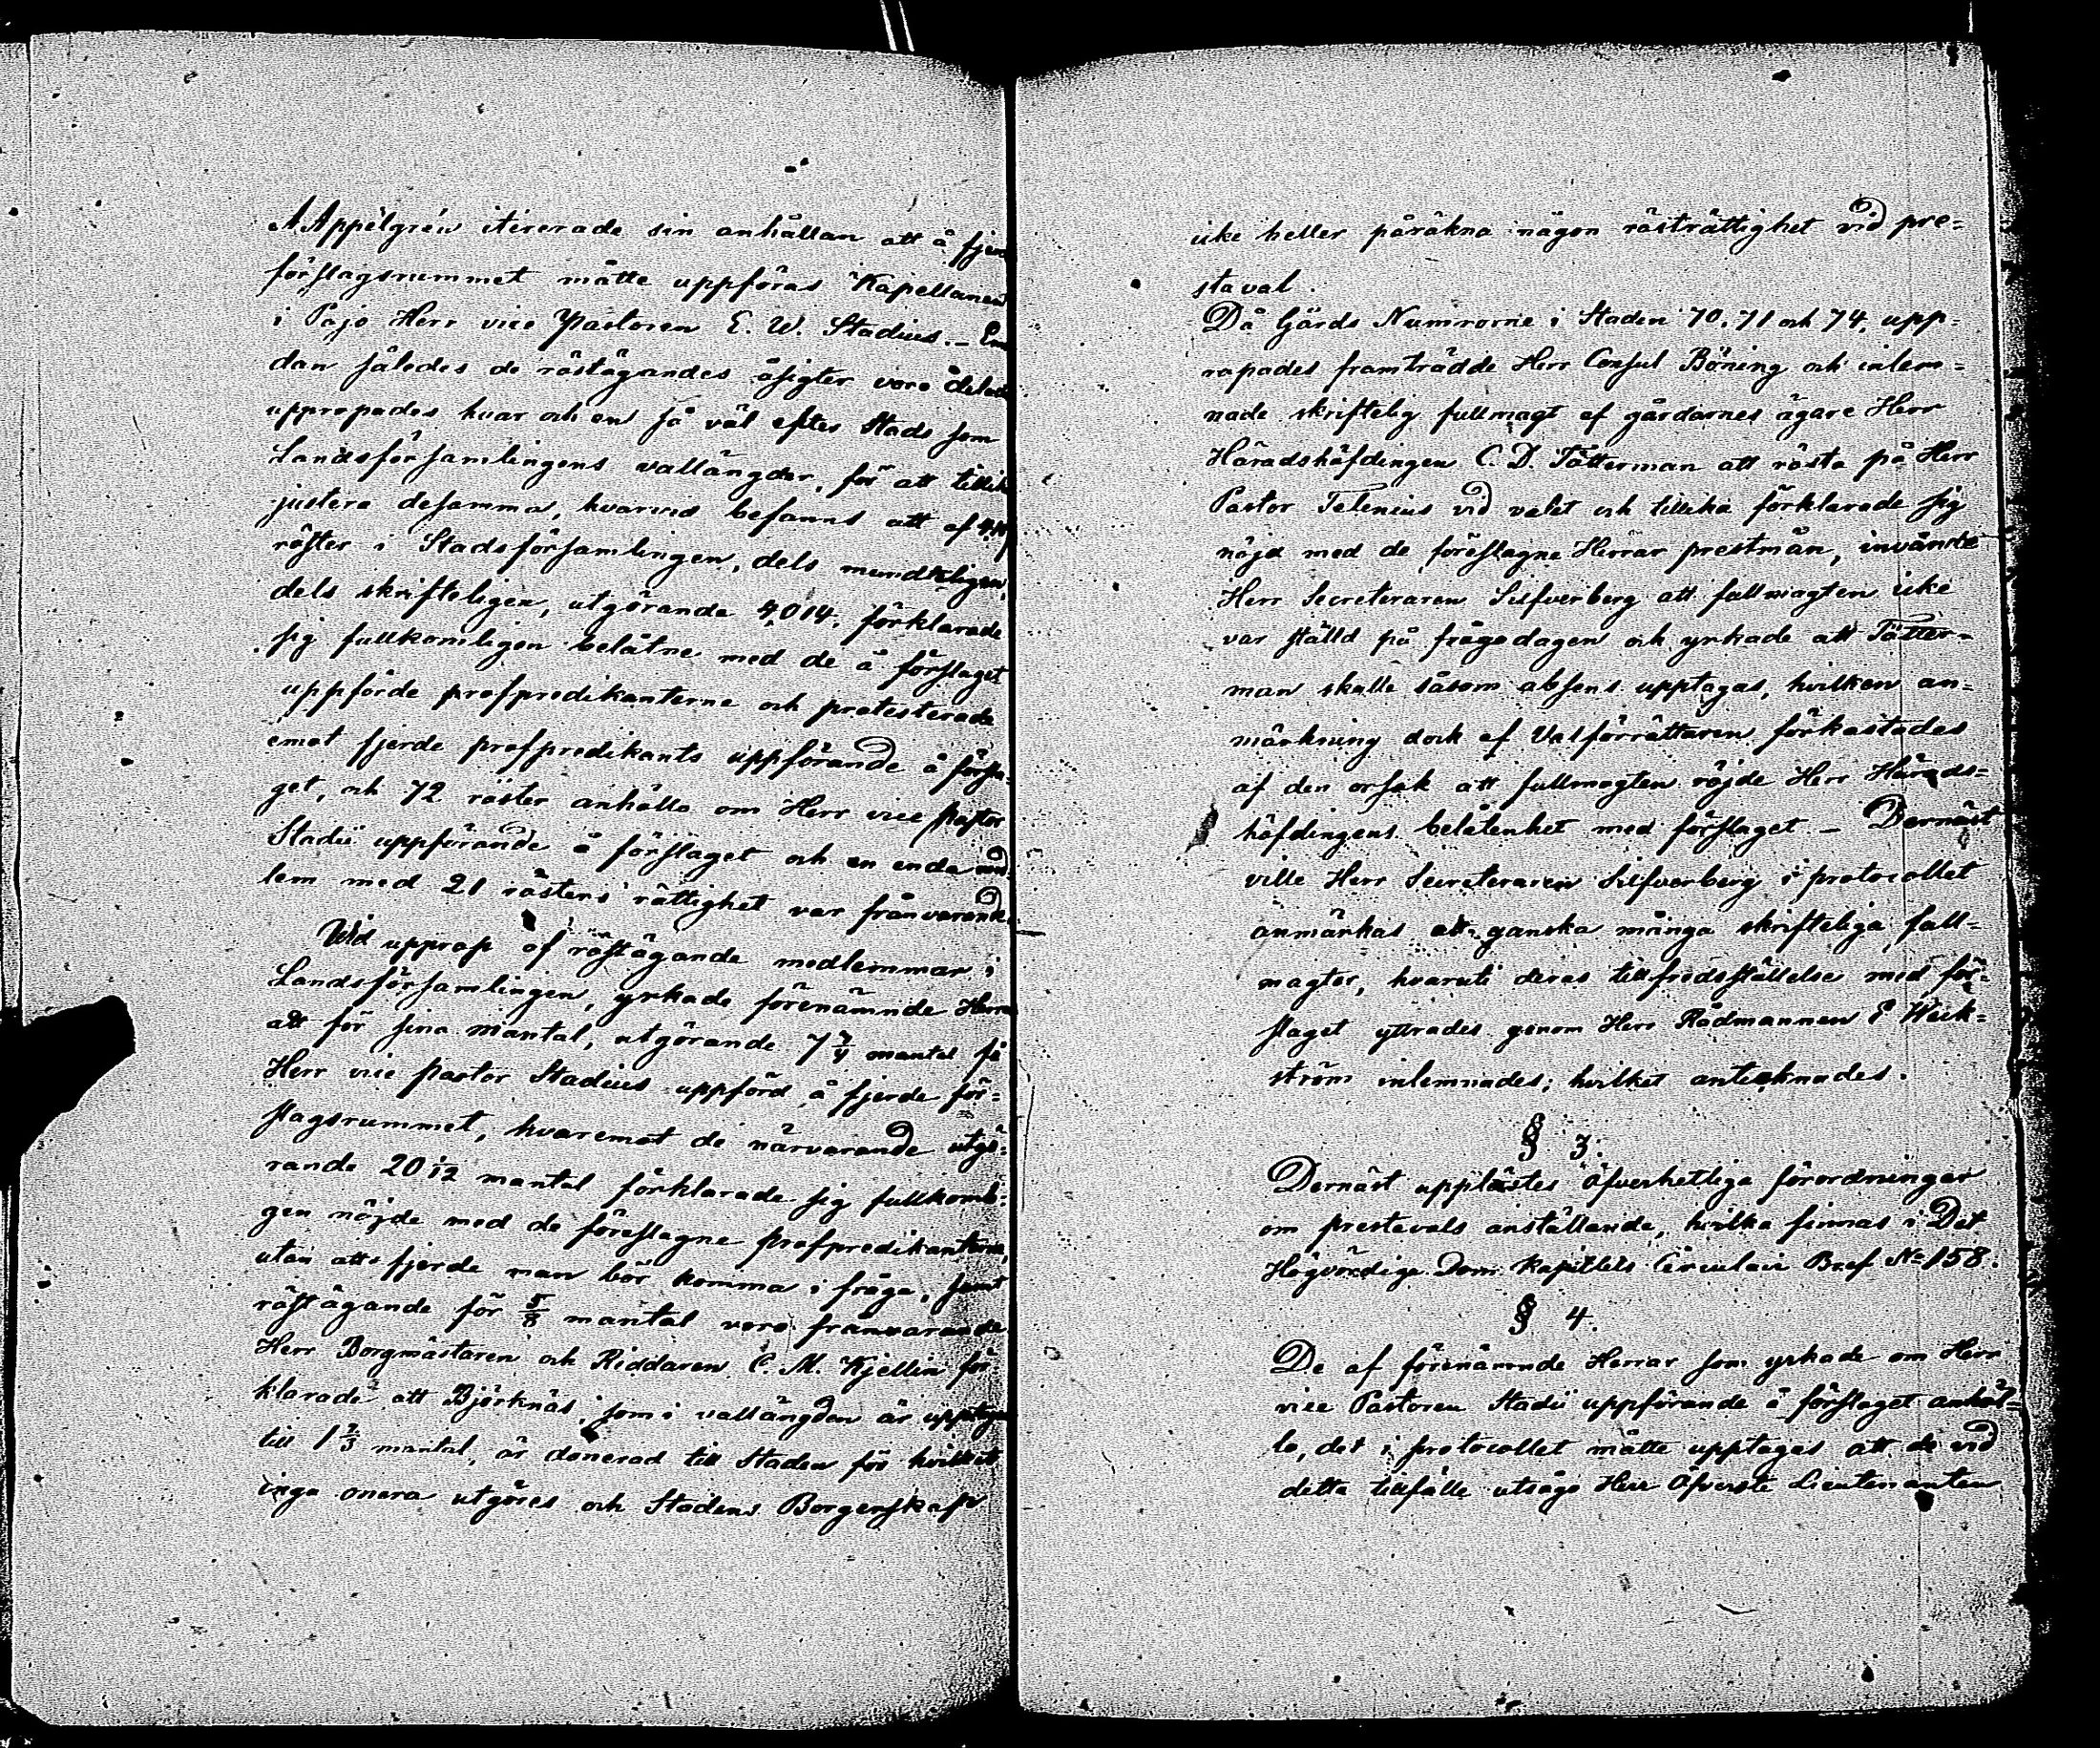 A Appelgrén itererade sin anhållan att å
förslagsrummet måtte uppföras Kapellanen
i Pojo Herr vice Pastoren E. W. Stadius. –
dan således de röstägandes åsigter voro delade
uppropades hvar och en så väl efter Stads som
Landsförsamlingens vallängder, för att
justera desamma, hvarvid befanns att af
röster i Stadsförsamlingen, dels mundteligen,
dels skrifteligen, utgörande 4,014, förklarade
sig fullkomligen belåtne med de å förslaget
uppförde profpredikanterne och protesterade
emot fjerde profpredikants uppförande å försla-
get, och 72 röster anhöllo om Herr vice Pastor
Stadii uppförande å förslaget och en enda med
lem med 21 rösters rättighet var frånvarande
Wid upprop af röstägande medlemmar i
Landsförsamlingen, yrkade förenämnde Herrar
att för sina mantal, utgörande 7 3/4 mantal få
Herr vice Pastor Stadius uppförd å fjerde för-
slagsrummet, hvaremot de närvarande utgö-
rande 20 1/12 mantal förklarade sig fullkomli-
gen nöjde med de föreslagne profpredikanterne,
utan att fjerde man bör komma i fråga, samt
röstägande för 5/8 mantal voro frånvarande
Herr Borgmästaren och Riddaren C. M. Kjellin för-
klarade att Björknäs, som i vallängden är upptagen
till 1 2/3 mantal, är donerad till Staden för hvilket
inga onera utgöres och Stadens Borgerskap
icke heller påräkna någon rösträttighet vid pre-
staval.
Då Gårds Numrorne i Staden 70, 71 och 74, upp-
ropades framträdde Herr Consul Böning och inlem-
nade skriftelig fullmagt af gårdarnes ägare Herr
Häradshöfdingen C. D. Tötterman att rösta på Herr
Pastor Telenius vid valet och tillika förklarade sig
nöjd med de föreslagne Herrar prestmän, invände
Herr Secreteraren Silfverberg att fullmagten icke
var ställd på frågodagen och yrkade att Tötter-
man skulle såsom absens upptagas, hvilken an-
märkning dock af Valförrättaren förkastades
af den orsak att fullmagten röjde Herr Härads-
höfdingens belåtenhet med förslaget – Dernäst
ville Herr Secreteraren Silfverberg i protocollet
anmärkas att ganska många skrifteliga full-
magter, hvaruti deras tillfredsställelse med för-
slaget yttrades genom Herr Rådmannen E Weck-
ström inlemnades; hvilket antecknades.
§ 3.
Dernäst upplästes Öfverhetliga förordningar
om prestevals anställande, hvilka finnas i Det
Högvördige Dom Kapitlets Circulair Bref No 158.
§ 4.
De af förenämnde Herrar som yrkade om Herr
vice Pastoren Stadii uppförande å förslaget anhöl-
lo, det i protocollet måtte upptagas att de vid
detta tillfälle utsågo Herr Öfverste Lieutenanten